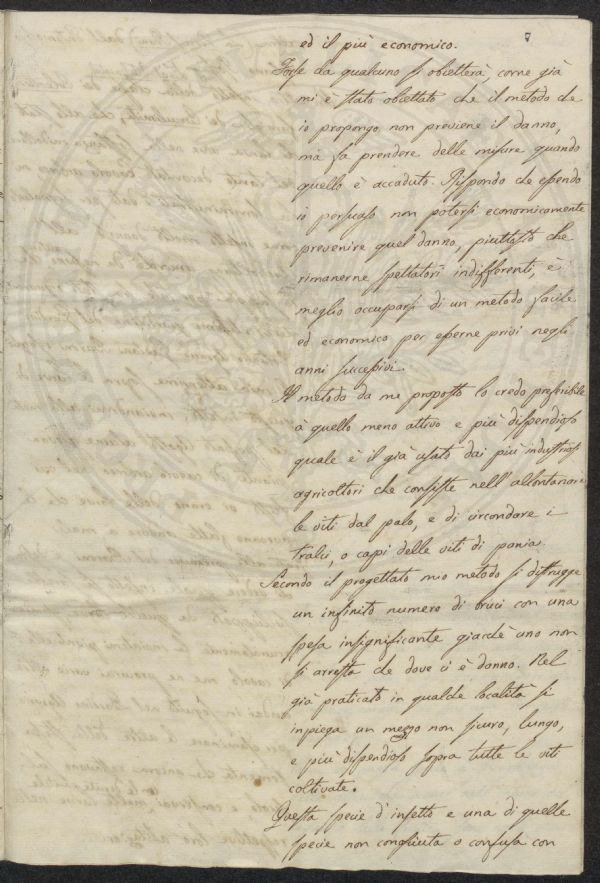 7
ed il più economico.
Forse da qualcuno si obietterà come già
mi è stato obiettato che il metodo che
io propongo non previene il danno,
ma fa prendere delle misure quando
quello è accaduto. Rispondo che essendo
io persuaso non potersi economicamente
prevenire quel danno, piuttosto che
rimanerne spettatori indifferenti, è
meglio occuparsi di un metodo facile
ed economico per esserne privi negli
anni successivi.
Il metodo da me proposto lo credo preferibile
a quello meno attivo e più dispendioso
quale è il già usato dai più industriosi
agricoltori che consiste nell'allontanare
le viti dal palo, e di circondare i
tralci, o capi delle viti di pania
Secondo il progettato mio metodo si distrugge
un infinito numero di bruci con una
spesa insignificante giacchè uno non
si arresta che dove ci è danno. Nel
già praticato in qualche località si
inpiega un mezzo non sicuro, lungo,
e più dispendioso sopra tutte le viti
coltivate.
Questa specie d'insetto e una di quelle
specie non conosciuta o confusa con